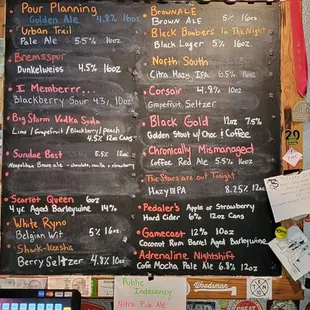 Pour Planning
Golden Ale 4.8% 16oz
Urban Trail
Pale Ale 5.5% 16oz
Bremsspur
Dunkelweiss 4.5% 16oz
I Memberrr...
Blackberry Sour 4.3% 10oz
Big Storm Vodka Soda
Lime / Grapefruit / Blackberry / peach
4.5% 12oz cans
Sundae Best 5.5% 12oz
Neapolitan Brown ale - chocolate, vanilla + strawberry
Scarlet Queen 6oz
4 yr. Aged Barleywine 14%
White Ryno
Belgian Wit 5% 16oz.
Shark-Keesha
Berry Seltzer 4.8% 10oz
BrownALE
Brown Ale 5% 16oz
Black Bombers In The Night
Black Lager 5% 16oz
North South
Citra Hazy IPA 6.5% 16oz
Corsair 4.8% 10oz
Grapefruit Seltzer
Black Gold 12oz 7.5%
Golden Stout w/ Choc + Coffee
Chronically Mismanaged
Coffee Red Ale 5.5% 16oz
The Stars are out Tonight
Hazy IPA 8.25% 12oz
Pedaler's Apple or Strawberry
Hard Cider 6% 12oz Cans
Gamecast 12% 10oz
Coconut Rum Barrel Aged Barleywine
Adrenaline Nightshift
Cafe Mocha Pale Ale 6.8% 12oz
Public
Indecency
Nitro Pale Ale
Woodsman